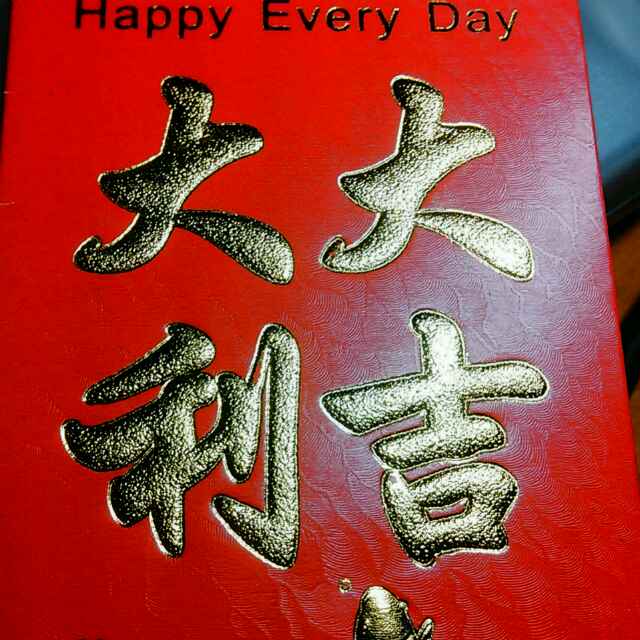 Happy Every Day
大吉
大利